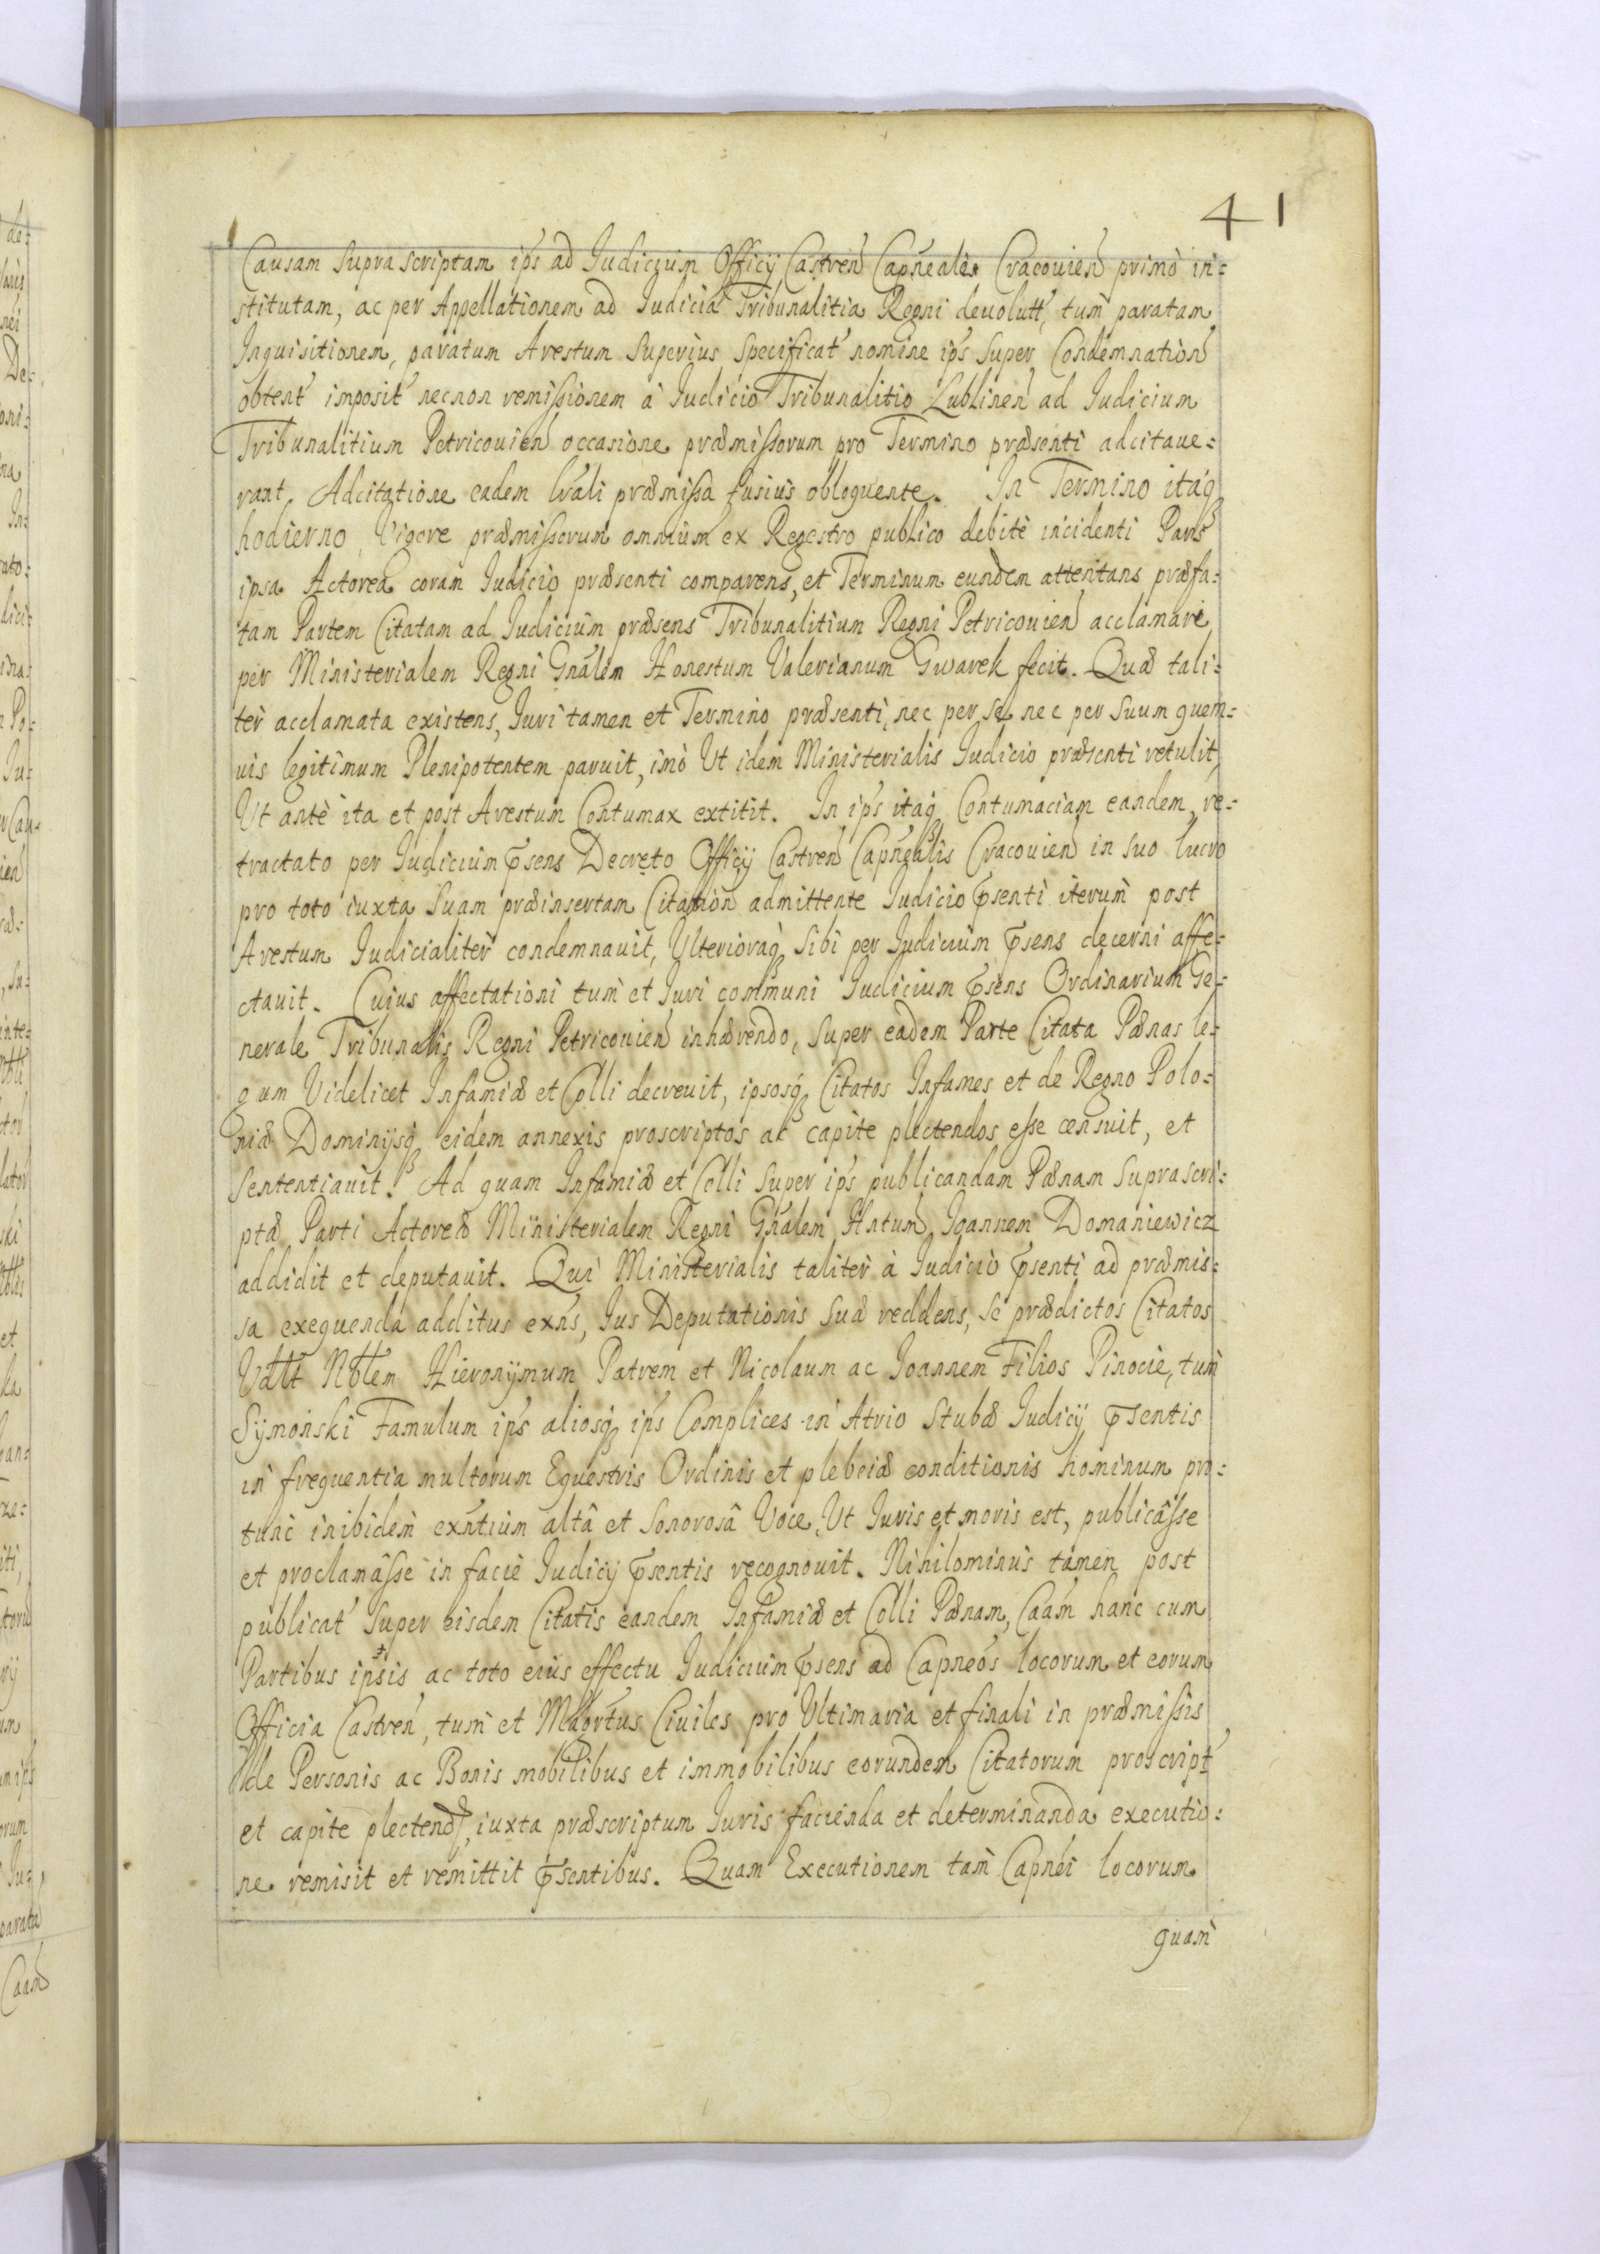 41
Causam supra scriptam ips ad Judicium Officij Castren Capnealis Cracouien primò in=
stitutam, ac per Appellationem ad Judicia Tribunalitia Regni deuolutt, tum paratam
Inquisitionem, paratum Arestum superius specificat nomine ips super Condemnation
obtent imposit necnon remissionem à Judicio Tribunalitio Lublinen ad Judicium
Tribunalitium Petricouien occasione præmissorum pro Termino præsenti adcitaue=
rant, Adcitatione eadem lrali præmissa fusius obloquente. In Termino itaq
hodierno Vigore præmissorum omnium ex Regestro publico debitè incidenti Pars
ipsa Actorea coram Judicio præsenti comparens, et Terminum eundem attentans præfa=
tam Partem Citatam ad Judicium præsens Tribunalitium Regni Petricouien acclamari
per Ministerialem Regni Gnalem Honestum Valerianum Gwarek fecit. Quæ tali=
ter acclamata existens, Juri tamen et Termino præsenti, nec per se nec per suum quem=
uis legitimum Plenipotentem paruit, imò Ut idem Ministerialis Judicio præsenti retulit
Ut antè ita et post Arestum Contumax extitit. In ips itaq Contumaciam eandem, re=
tractato per Judicium psens Decreto Officij Castren Capnealis Cracouien in suo lucro
pro toto iuxta suam præinsertam Citation admittente Judicio psenti iterum post
Arestum Judicialiter condemnauit, Ulterioraq sibi per Judicium psens decerni affe=
ctauit. Cuius affectationi tum et Juri communi Judicium psens Ordinarium Ge=
nerale Tribunalis Regni Petricouien inhærendo, super eadem Parte Citata Pænas le=
gum Videlicet Infamiæ et Colli decreuit, ipsosq Citatos Infames et de Regno Polo=
niæ Dominijsq eidem annexis proscriptos ac capite plectendos esse censuit, et
sententiauit. Ad quam Infamiæ et Colli super ips publicandam Pænam suprascri=
ptæ Parti Actoreæ Ministerialem Regni Gnalem Hntum Joannem Domaniewicz
addidit et deputauit. Qui Ministerialis taliter à Judicio psenti ad præmis=
sa exequenda additus exns, Jus Deputationis suæ reddens, se prædictos Citatos
Udltt Nbtlem Hieronijmum Patrem et Nicolaum ac Joannem Filios Pinocie, tum
Sijmonski Famulum ips aliosq ips Complices in Atrio Stubæ Judicij psentis
in frequentia multorum Equestris Ordinis et plebeiæ conditionis hominum pro=
tunc inibidem exntium altâ et sonorosâ Voce, Ut Juris et moris est, publicâsse
et proclamâsse in facie Judicij psentis recognouit. Nihilominus tamen post
publicat super eisdem Citatis eandem Infamiæ et Colli Pænam, Caam hanc cum
Partibus ipsis ac toto eius effectu Judicium psens ad Capneos locorum et eorum
Officia Castren, tum et Magrtus Ciuiles pro Ultimaria et finali in præmissis
de Personis ac Bonis mobilibus et immobilibus eorundem Citatorum proscript
et capite plectend, iuxta præscriptum Juris facienda et determinanda executio=
ne remisit et remittit psentibus. Quam Executionem tam Capnei locorum
quam